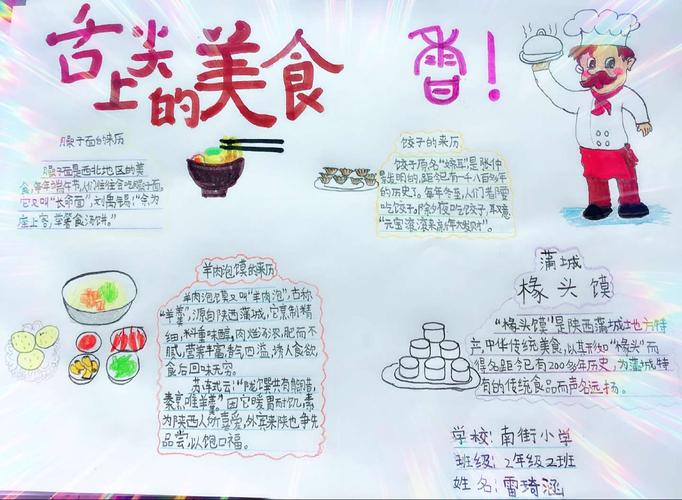 舌尖上的美食
香！
臊子面的来历
臊子面是西北地区的美
食,每年端午节人们往往会吃臊子面,
它又叫"长命面",刘禹锡:"余为
座上客,举箸食汤饼。"
饺子的来历
饺子原名"娇耳"是张仲
景发明的,距今已有一千八百多年
的历史了。每年冬至,人们都要
吃饺子。除夕夜吃饺子,取意
"元宝滚滚来,新年大发财"。
羊肉泡馍的来历
羊肉泡馍又叫"羊肉泡",古称
"羊羹",源自陕西蒲城,它烹制精
细,料重味醇,肉烂汤浓,肥而不
腻,营养丰富,香气四溢,诱人食欲,
食后回味无穷。
苏轼云:"陇馔有熊腊,
秦烹唯羊羹"。因它暖胃耐饥,素
为陕西人所喜爱,外宾来陕也争先
品尝,以饱口福。
蒲城
椽头馍
"椽头馍"是陕西蒲城地方特
产,中华传统美食,以其形如"椽头"而
得名距今已有200多年历史,为蒲城特
有的传统食品而声名远扬。
学校:南街小学
班级:2年级2班
姓名:雷琦涵